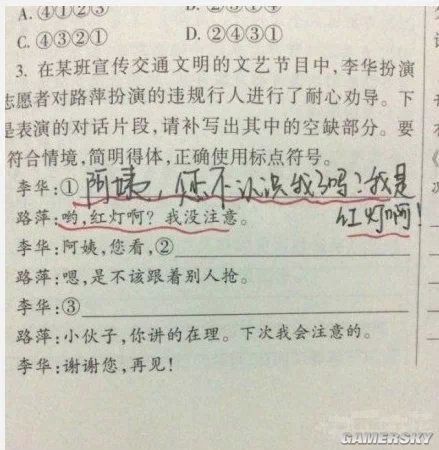 A. ④①②③
C. ④③②① D. ②④③①
3. 在某班宣传交通文明的文艺节目中,李华扮演
志愿者对路萍扮演的违规行人进行了耐心劝导。下
是表演的对话片段,请补写出其中的空缺部分。要
符合情境,简明得体,正确使用标点符号。
李华:①阿姨,您不认识我了吗?我是
红灯啊!
路萍:哟,红灯啊?我没注意。
李华:阿姨,您看,②
路萍:嗯,是不该跟着别人抢。
李华:③
路萍:小伙子,你讲的在理。下次我会注意的。
李华:谢谢您,再见!
GAMERSKY